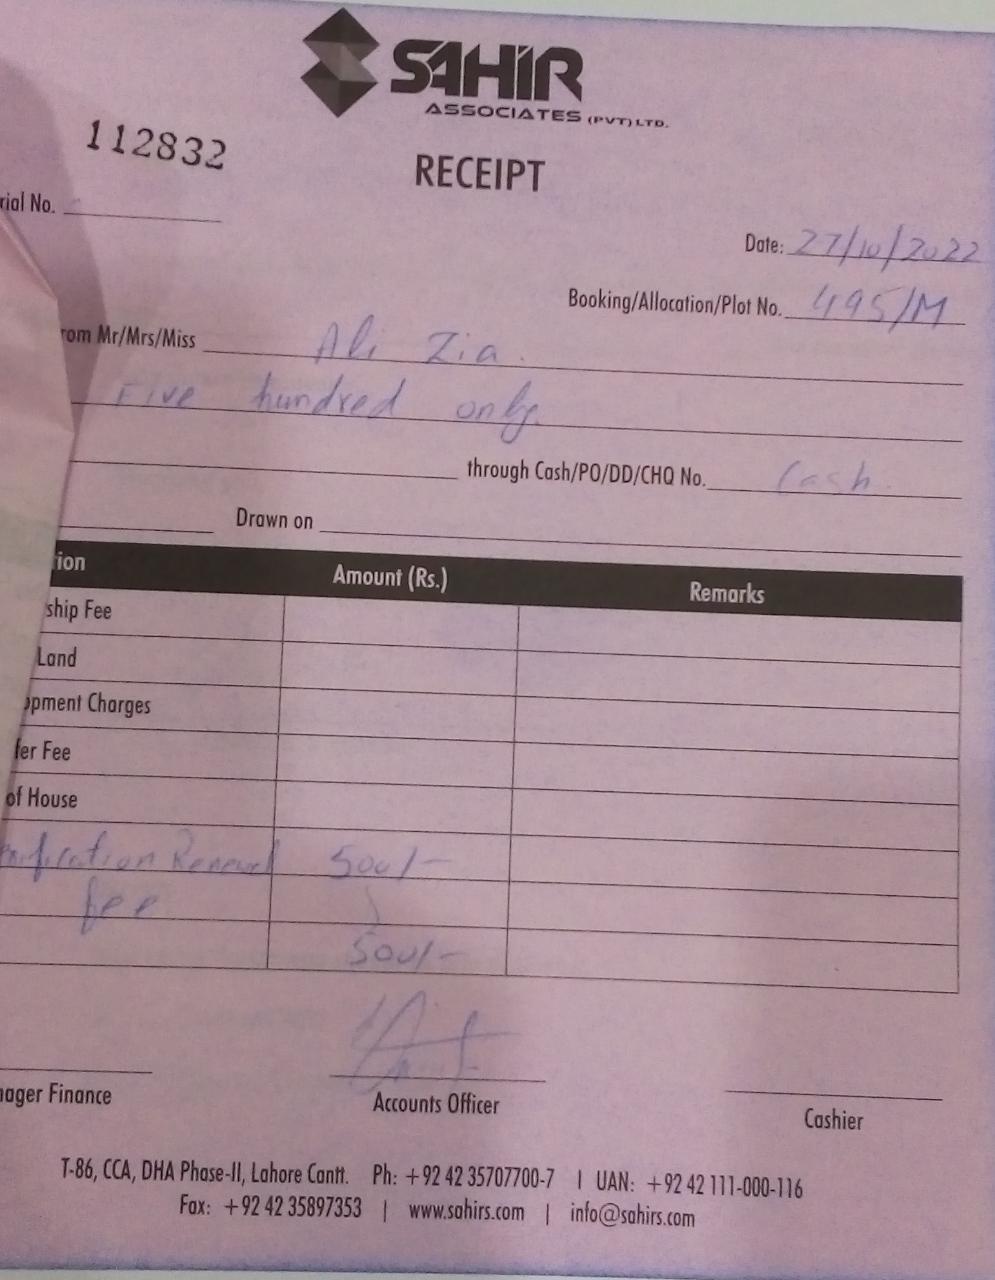 SAHIR
ASSOCIATES (PVT) LTD.
112832
RECEIPT
rial No.
Date: 27/10/2022
Booking/Allocation/Plot No. 495/M
rom Mr/Mrs/Miss Ali Zia.
Five hundred only.
through Cash/PO/DD/CHQ No. Cash.
Drawn on
ion Amount (Rs.) Remarks
ship Fee
Land
opment Charges
fer Fee
of House
Renewal 500/-
fee
500/-
nager Finance Accounts Officer Cashier
T-86, CCA, DHA Phase-II, Lahore Cantt. Ph: +92 42 35707700-7 | UAN: +92 42 111-000-116
Fax: +92 42 35897353 | www.sahirs.com | info@sahirs.com